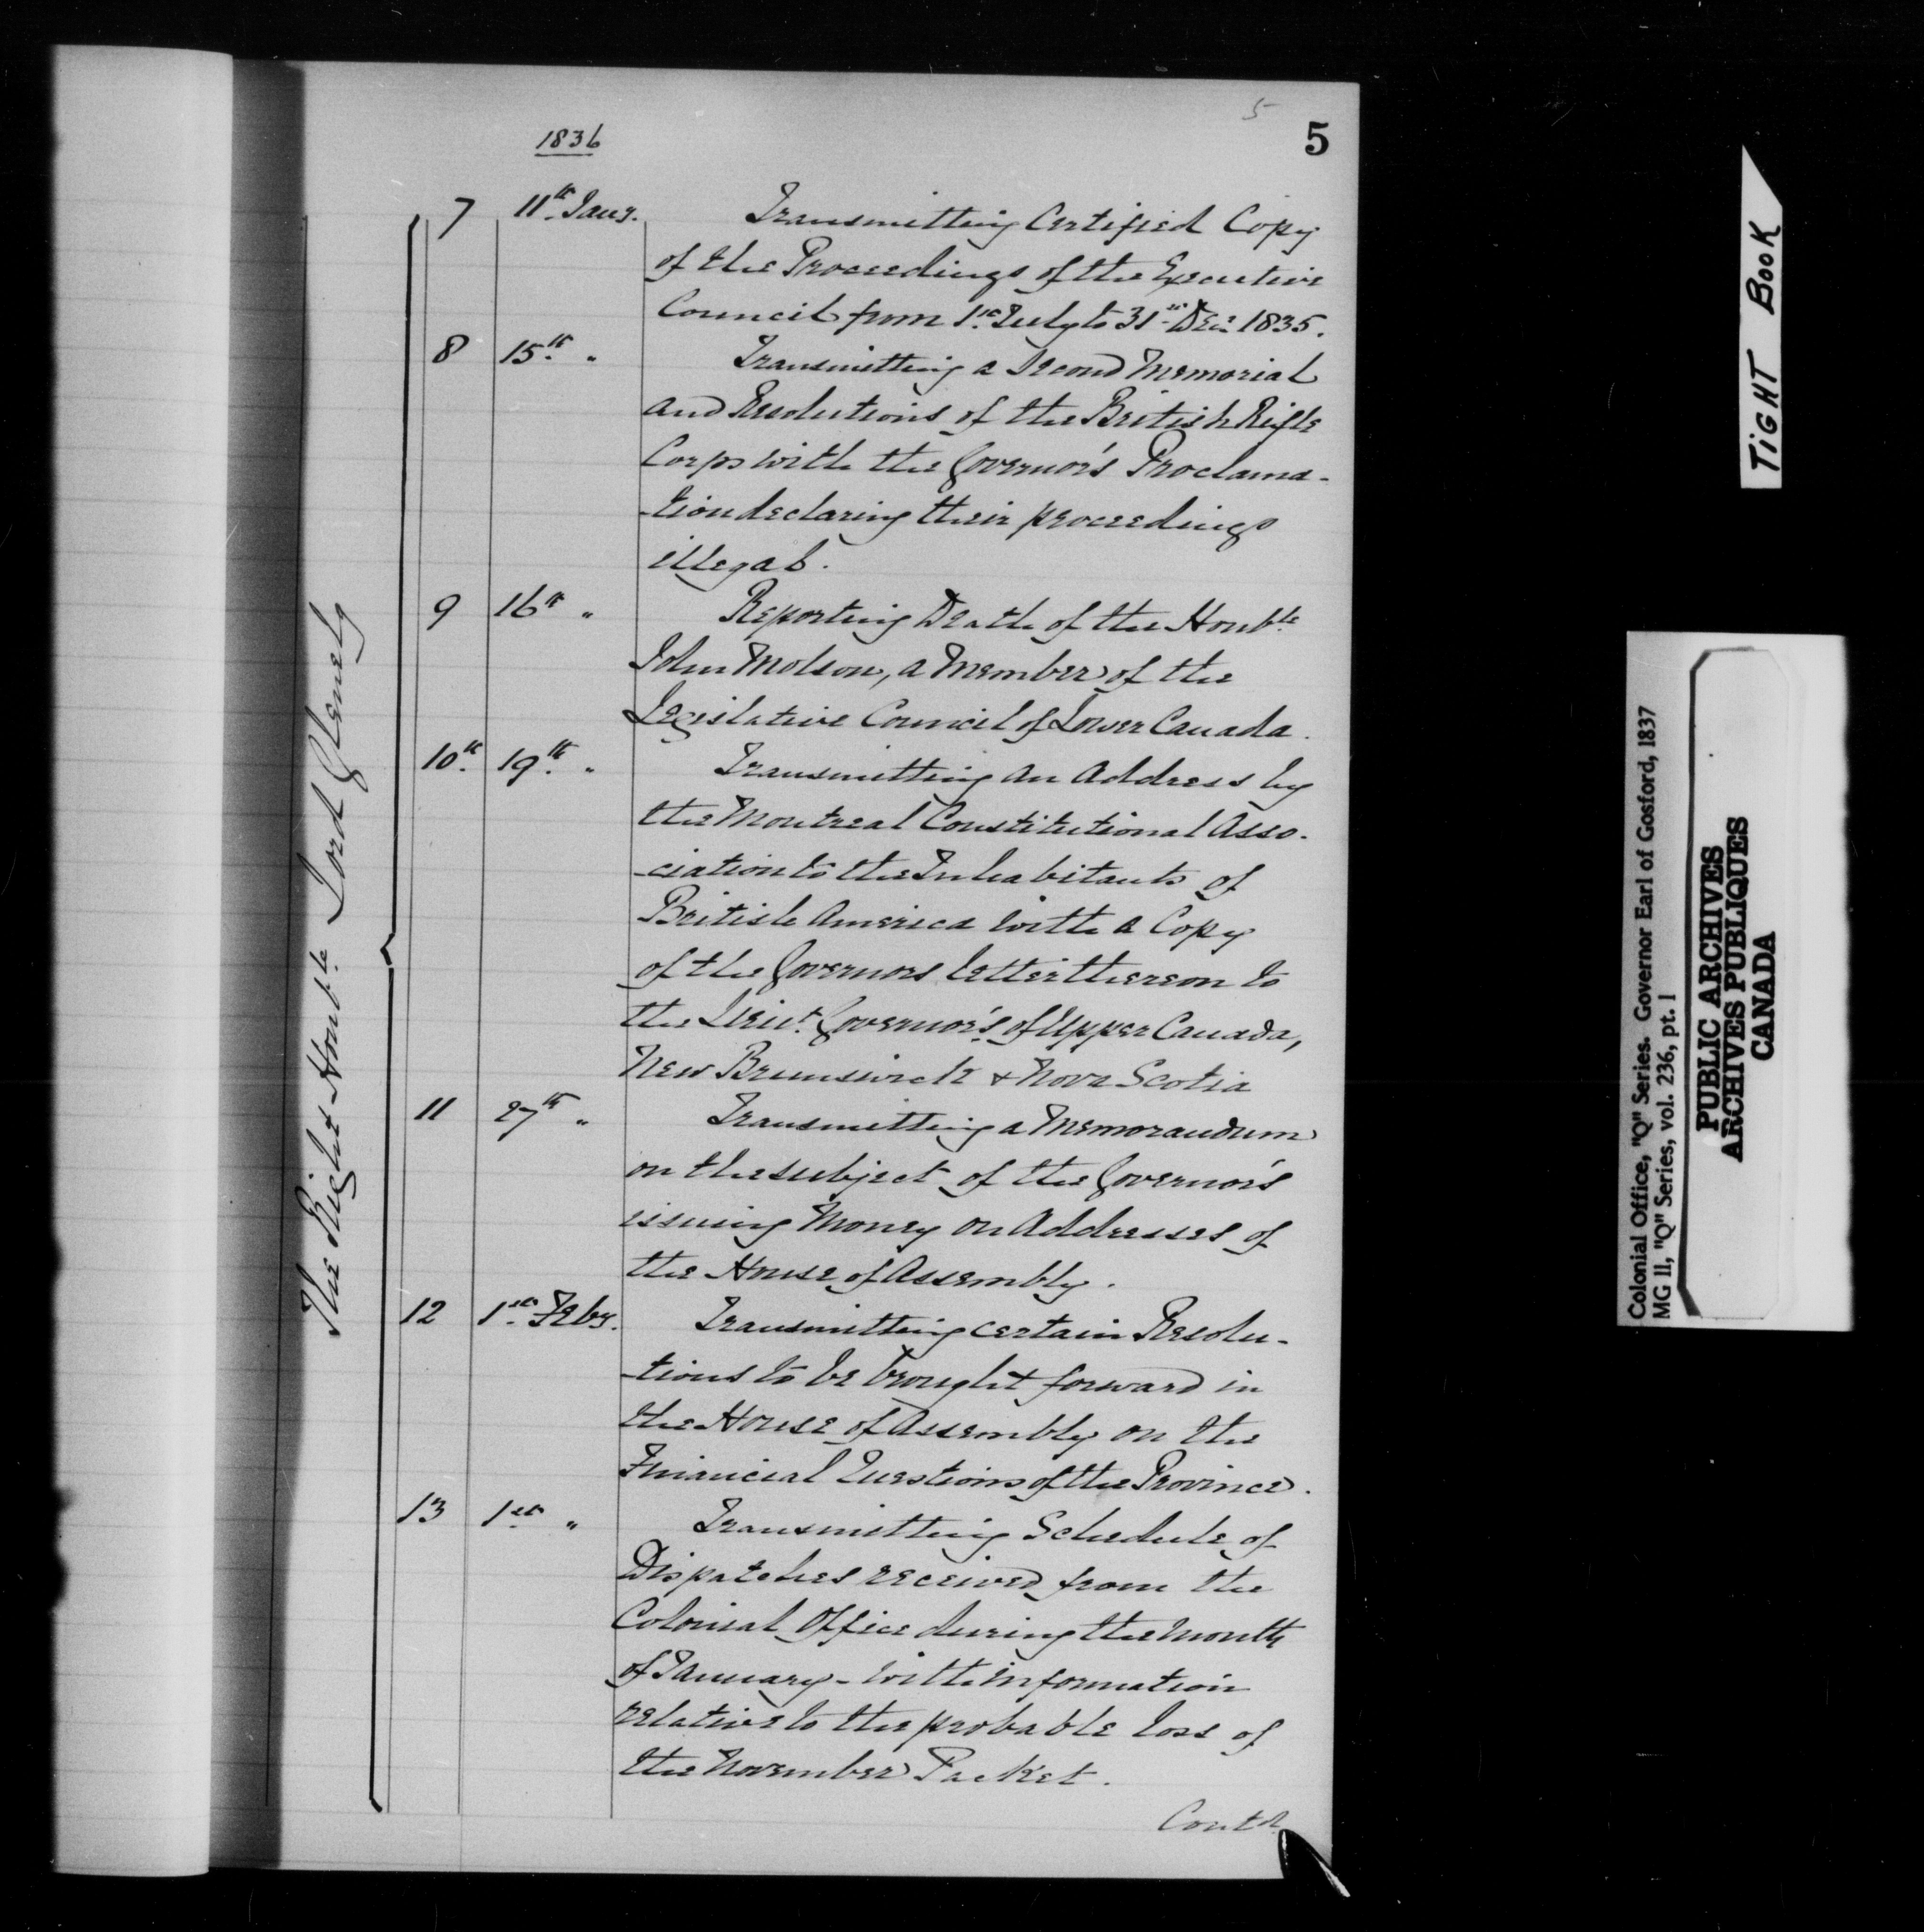 5
5
1836
The Right Honble. Lord Glenelg
7 11th Jany. Transmitting Certified Copy
of the Proceedings of the Executive
Council from 1st July to 31st Decr 1835.
8 15th " Transmitting a Second Memorial
and Resolutions of the British Rifle
Corps with the Governor's Proclama-
-tion declaring their proceedings
illegal.
9 16th " Reporting Death of the Honble.
John Molson, a Member of the
Legislative Council of Lower Canada.
10th 19th " Transmitting an Address by
the Montreal Constitutional Asso-
-ciation to the Inhabitants of
British America with a Copy
of the Governors letter thereon to
the Lieut. Governor's of Upper Canada,
New Brunswick & Nova Scotia
11 27th " Transmitting a Memorandum
on the subject of the Governor's
issuing Money on Addresses of
the House of Assembly.
12 1st Feby. Transmitting certain Resolu-
-tions to be brought forward in
the House of Assembly on the
Financial Questions of the Province.
13 1st " Transmitting Schedule of
Dispatches received from the
Colonial Office during the month
of January - with information
relative to the probable loss of
the November Packet.
Contd.
TIGHT BOOK
Colonial Office, "Q" Series. Governor Earl of Gosford, 1837
MG 11, "Q" Series, vol. 236, pt. 1
PUBLIC ARCHIVES
ARCHIVES PUBLIQUES
CANADA